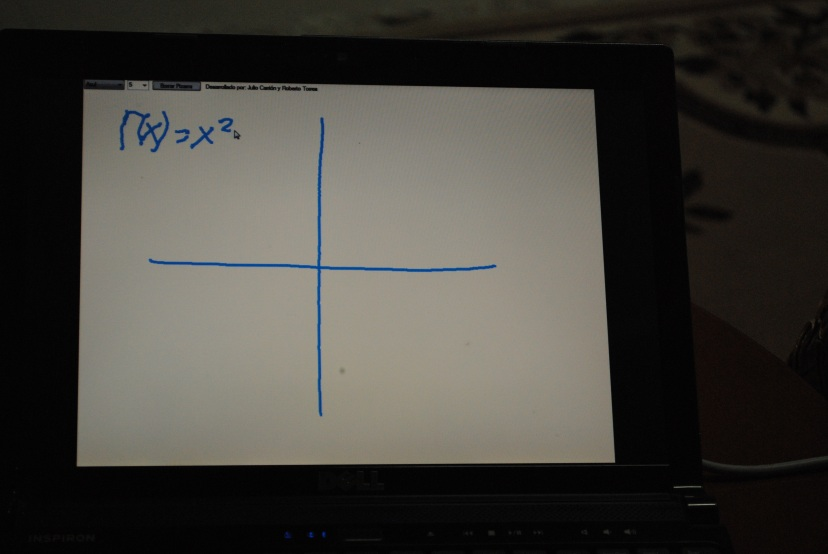 5 Borrar Pizarra Desarrollado por: Julio Castón y Roberto Torres
f(x) = x²
DELL
INSPIRON